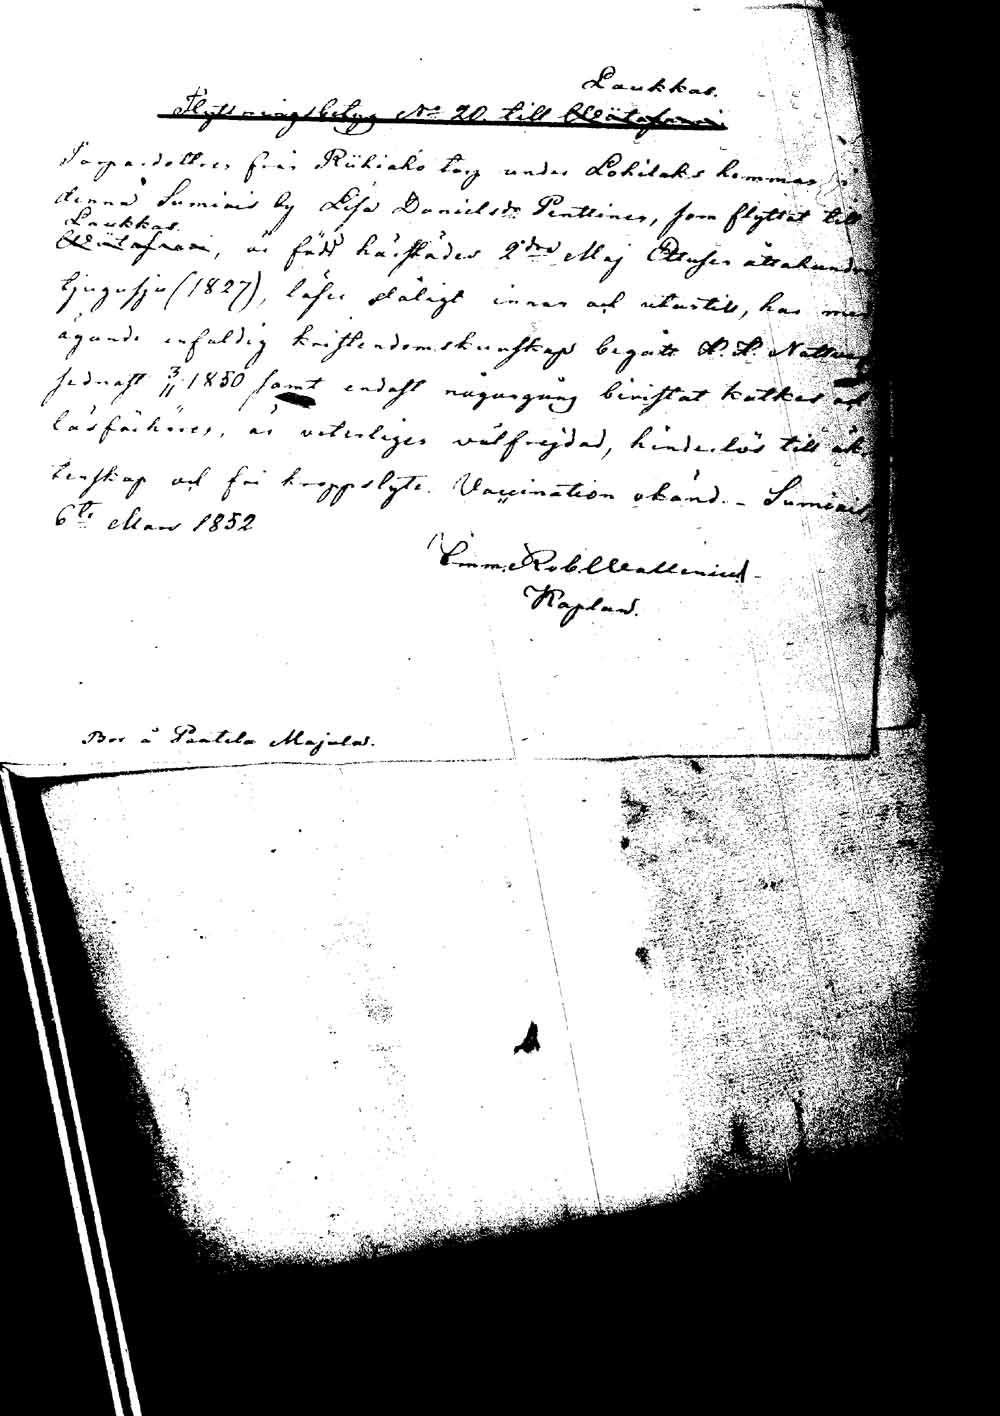 Laukkas.
Flyttningsbetyg No 20. till Wiitasaari
Torpardottren från Riihiaho torp under Lohilaks hemman i
denna Sumiais by Lisa Danielsdr Penttinen, som flyttat till
Laukkas.
Wiitasaari, är född härstädes 2dra Maj Ettusen åttahundra
tjugusju (1827), läser dåligt innan och utantill, har med
ägande enfaldig kristendomskunskap begått H. H. Nattvard
sednast 3/11 1850 samt endast någongång bivistat katkes och
läsförhören, är veterligen välfrejdad, hinderlös till äk-
tenskap och fri kroppslyte. Vaccination okänd. - Sumiais,
6te Mars 1852
Emm. Rob. Wallenius
Kaplan.
Bor å Paatela Majalas.